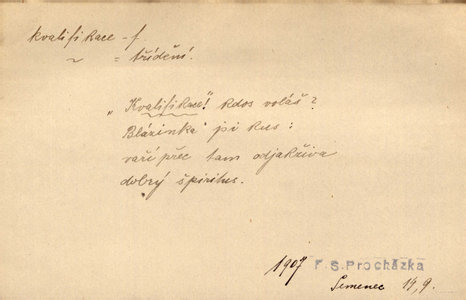 kvalifikace - f.
~ = třídění.
„Kvalifikace"! kdos voláš?
Blázínka pi kus:
vaří přec tam odjakživa
dobrý špiritus.
1907 F. S. Procházka
Semenec 14, 9.